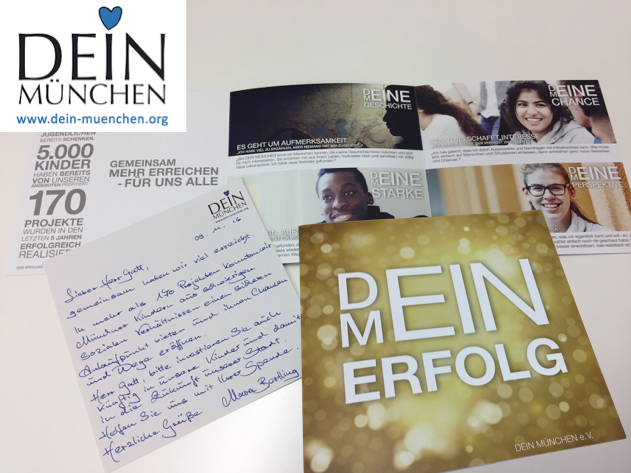 DEIN
MÜNCHEN
www.dein-muenchen.org
JUGENDLICHEN
BEREITS SCHENKEN.
5.000
KINDER
HABEN BEREITS
VON UNSEREN
ANGEBOTEN PROFITIERT.
170
PROJEKTE
WURDEN IN DEN
LETZTEN 5 JAHREN
ERFOLGREICH
REALISIERT
GEMEINSAM
MEHR ERREICHEN
- FÜR UNS ALLE
DEINE
MEINE
GESCHICHTE
ES GEHT UM AUFMERKSAMKEIT
DEINE
MEINE
CHANCE
DEINE
MEINE
STÄRKE
DEINE
MEINE
PERSPEKTIVE
DEIN
MÜNCHEN
09. 11. 16
Lieber Herr Gatt,
gemeinsam haben wir viel erreicht.
In mehr als 170 Projekten konnten wir
Münchner Kindern aus schwierigen
sozialen Verhältnissen einen sicheren
Anlaufpunkt bieten und ihnen Chancen
und Wege eröffnen.
Herr Gatt, bitte investieren Sie auch
künftig in unsere Kinder und damit
in die Zukunft unserer Stadt.
Helfen Sie uns mit Ihrer Spende.
Herzliche Grüße
Mara Bertling
DEIN
MEIN
ERFOLG
DEIN MÜNCHEN e.V.